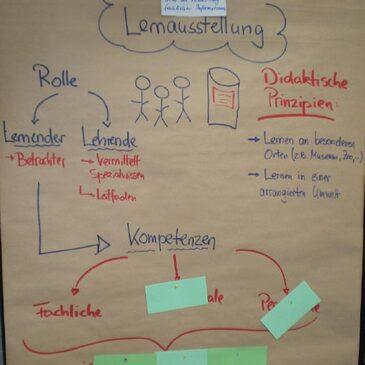 Lernausstellung
Rolle
Lernender
→ Betrachter
Lehrende
→ Vermittelt
Spezialwissen
→ Leitfaden
Didaktische
Prinzipien:
→ Lernen an besonderen
Orten (z.B. Museum, Zoo,..)
→ Lernen in einer
arrangierten Umwelt
Kompetenzen
Fachliche